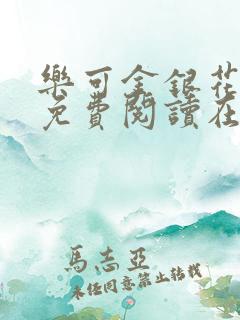 樂可金銀花
免費閱讀在
馬志亞
未經同意禁止轉載